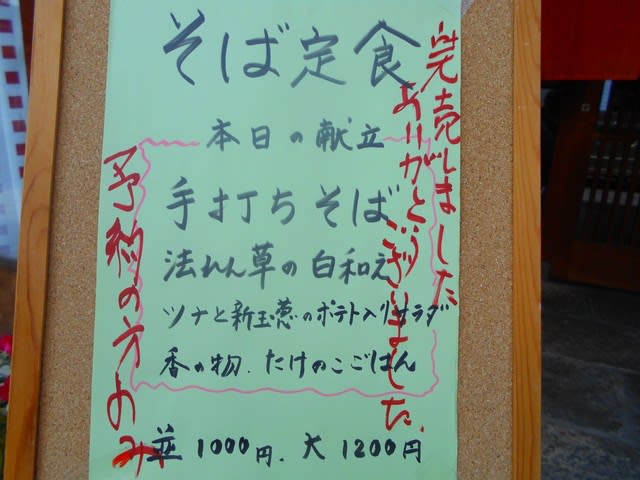 そば定食
本日の献立
手打ちそば
法れん草の白和え
ツナと新玉葱のポテト入りサラダ
香の物.たけのこごはん
並1000円.大1200円
完売しました
ありがとうございました.
予約の方のみ